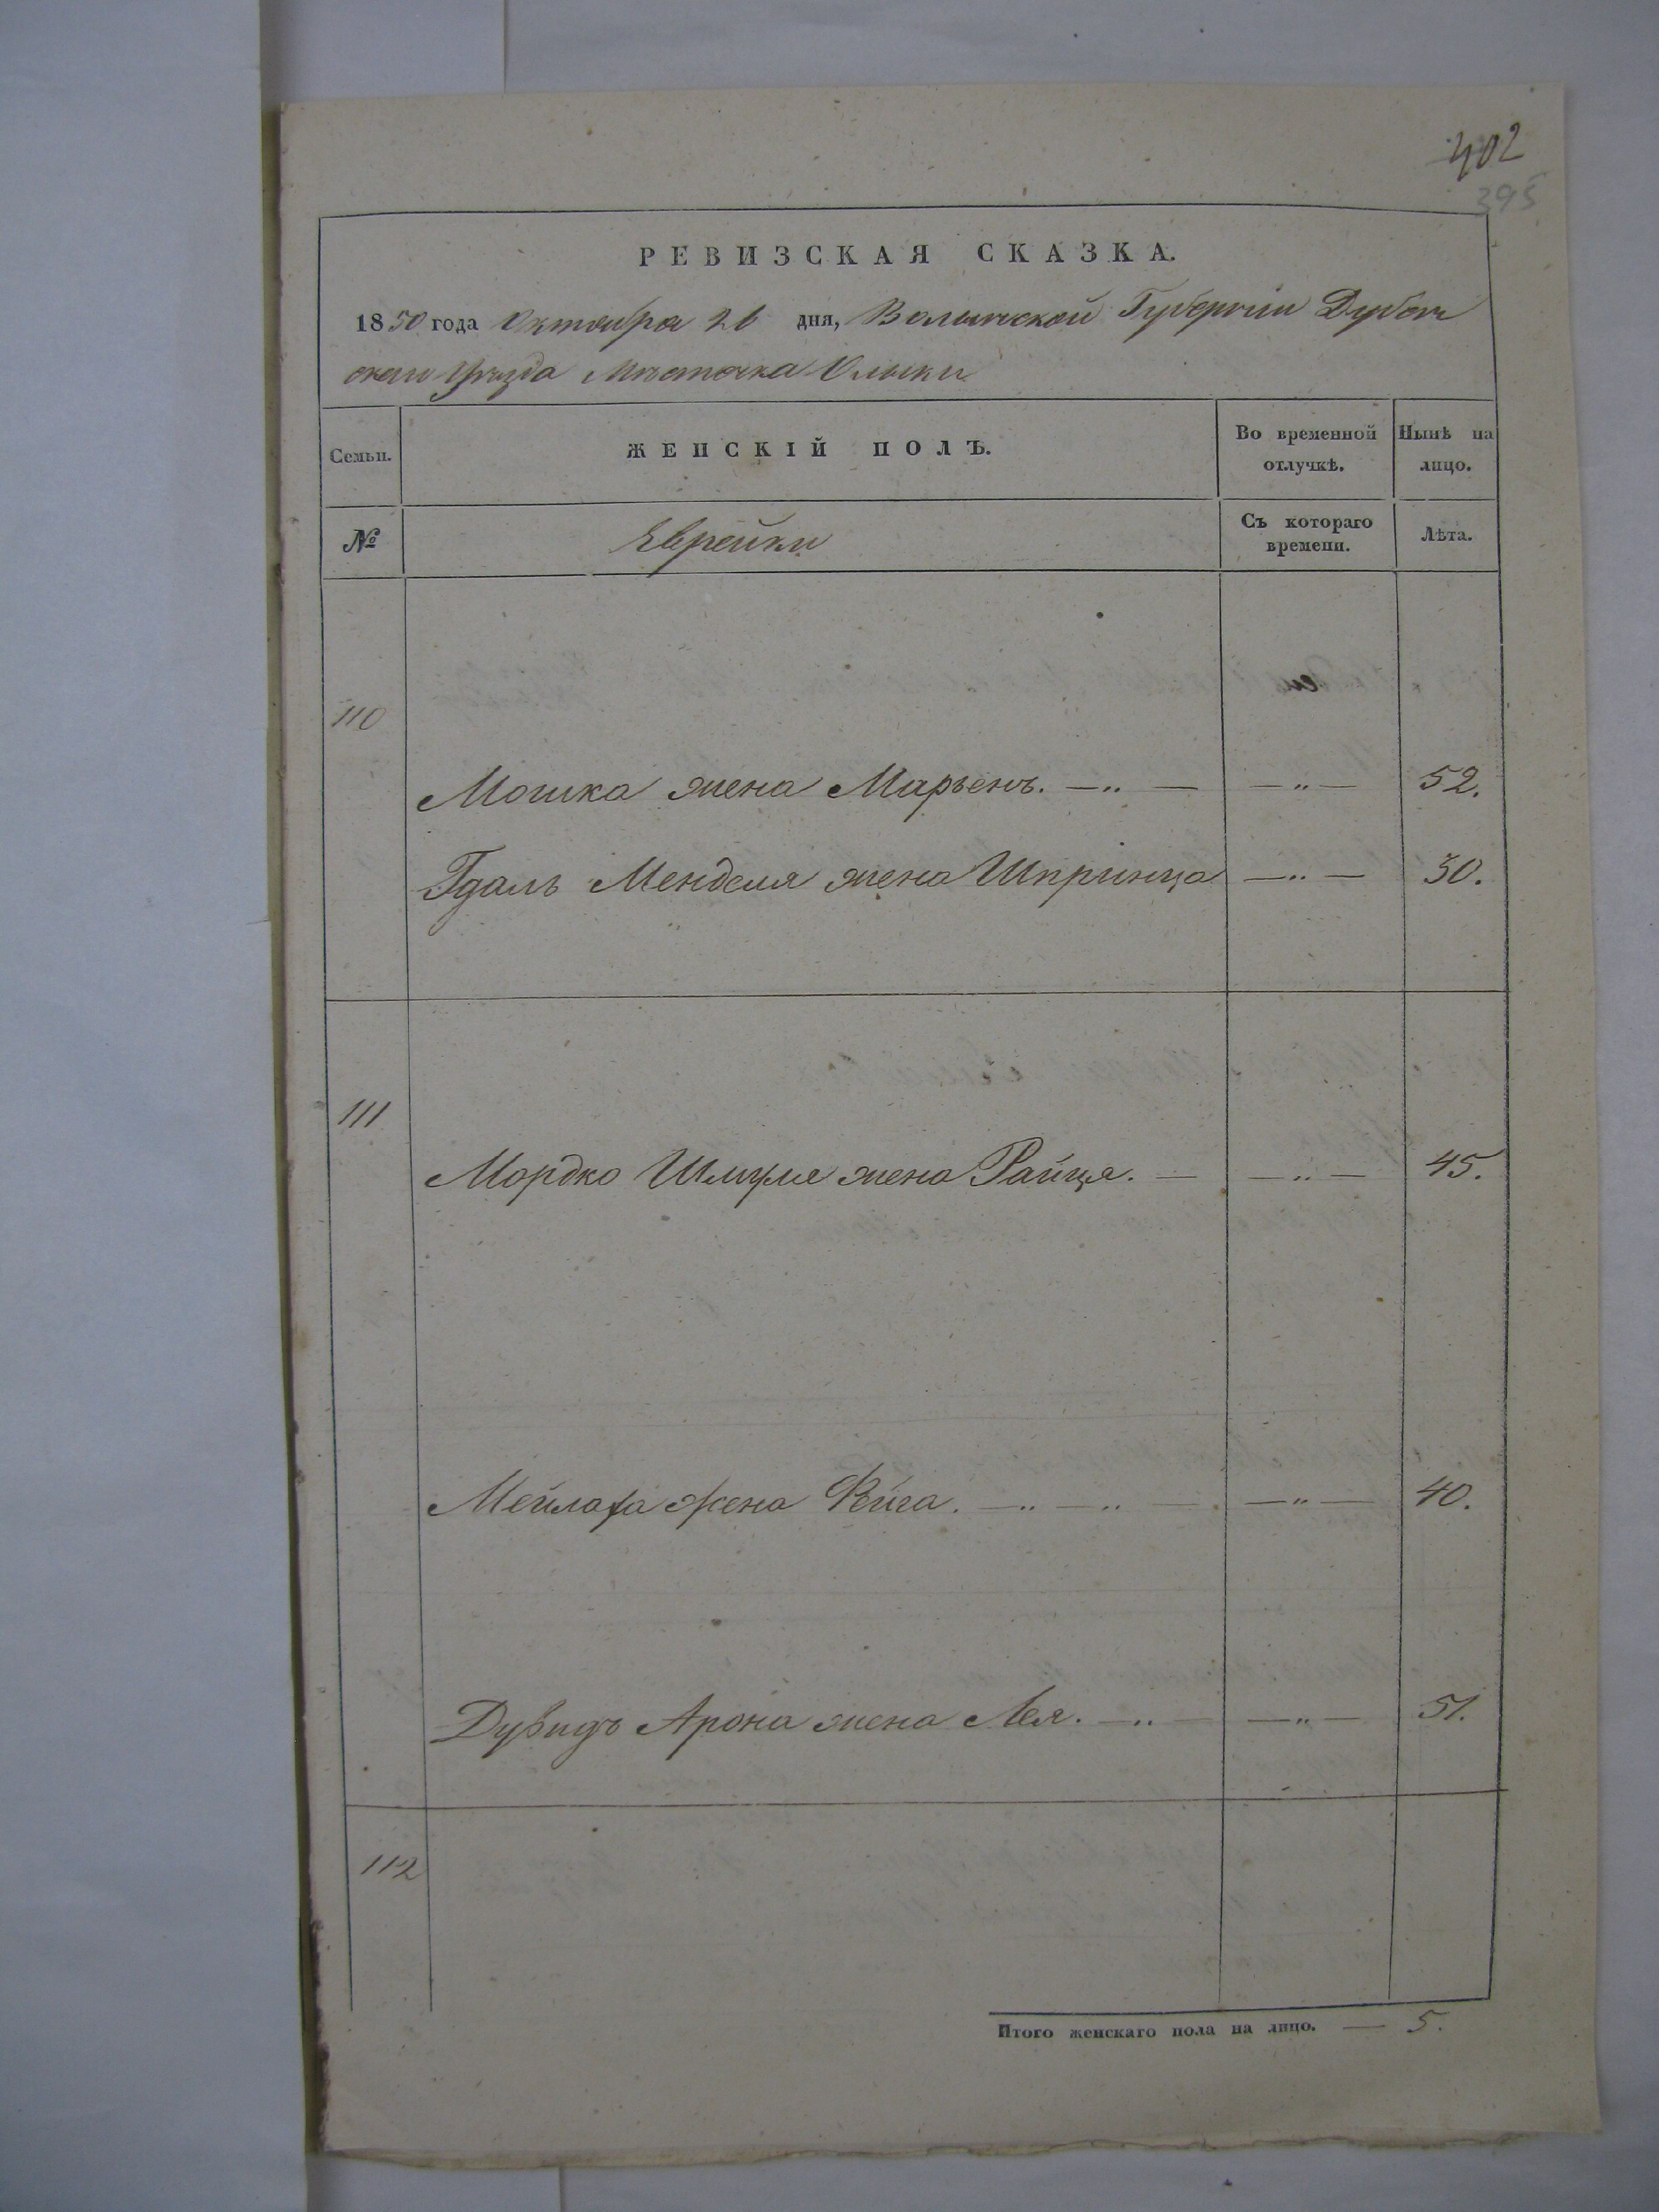 402
395
РЕВИЗСКАЯ СКАЗКА.
1850 года Октября 26 дня, Волынской Губернии Дубен
скаго уѣзда Мѣстечка Олыки
Семьи. ЖЕНСКІЙ ПОЛЪ. Во временной отлучкѣ. Нынѣ на лицо.
№ Еврейки Съ котораго времени. Лѣта.
110
Мошка жена Марьенъ. —„— —„— 52.
Гдаль Менделя жена Шпринца —„— 30.
111
Мордко Шмуля жена Райця. — —„— 45.
Мейлаха жена Фейга. —„—„— —„— 40.
Дувидъ Арона жена Лея. —„— —„— 51.
112
Итого женскаго пола на лицо. — 5.